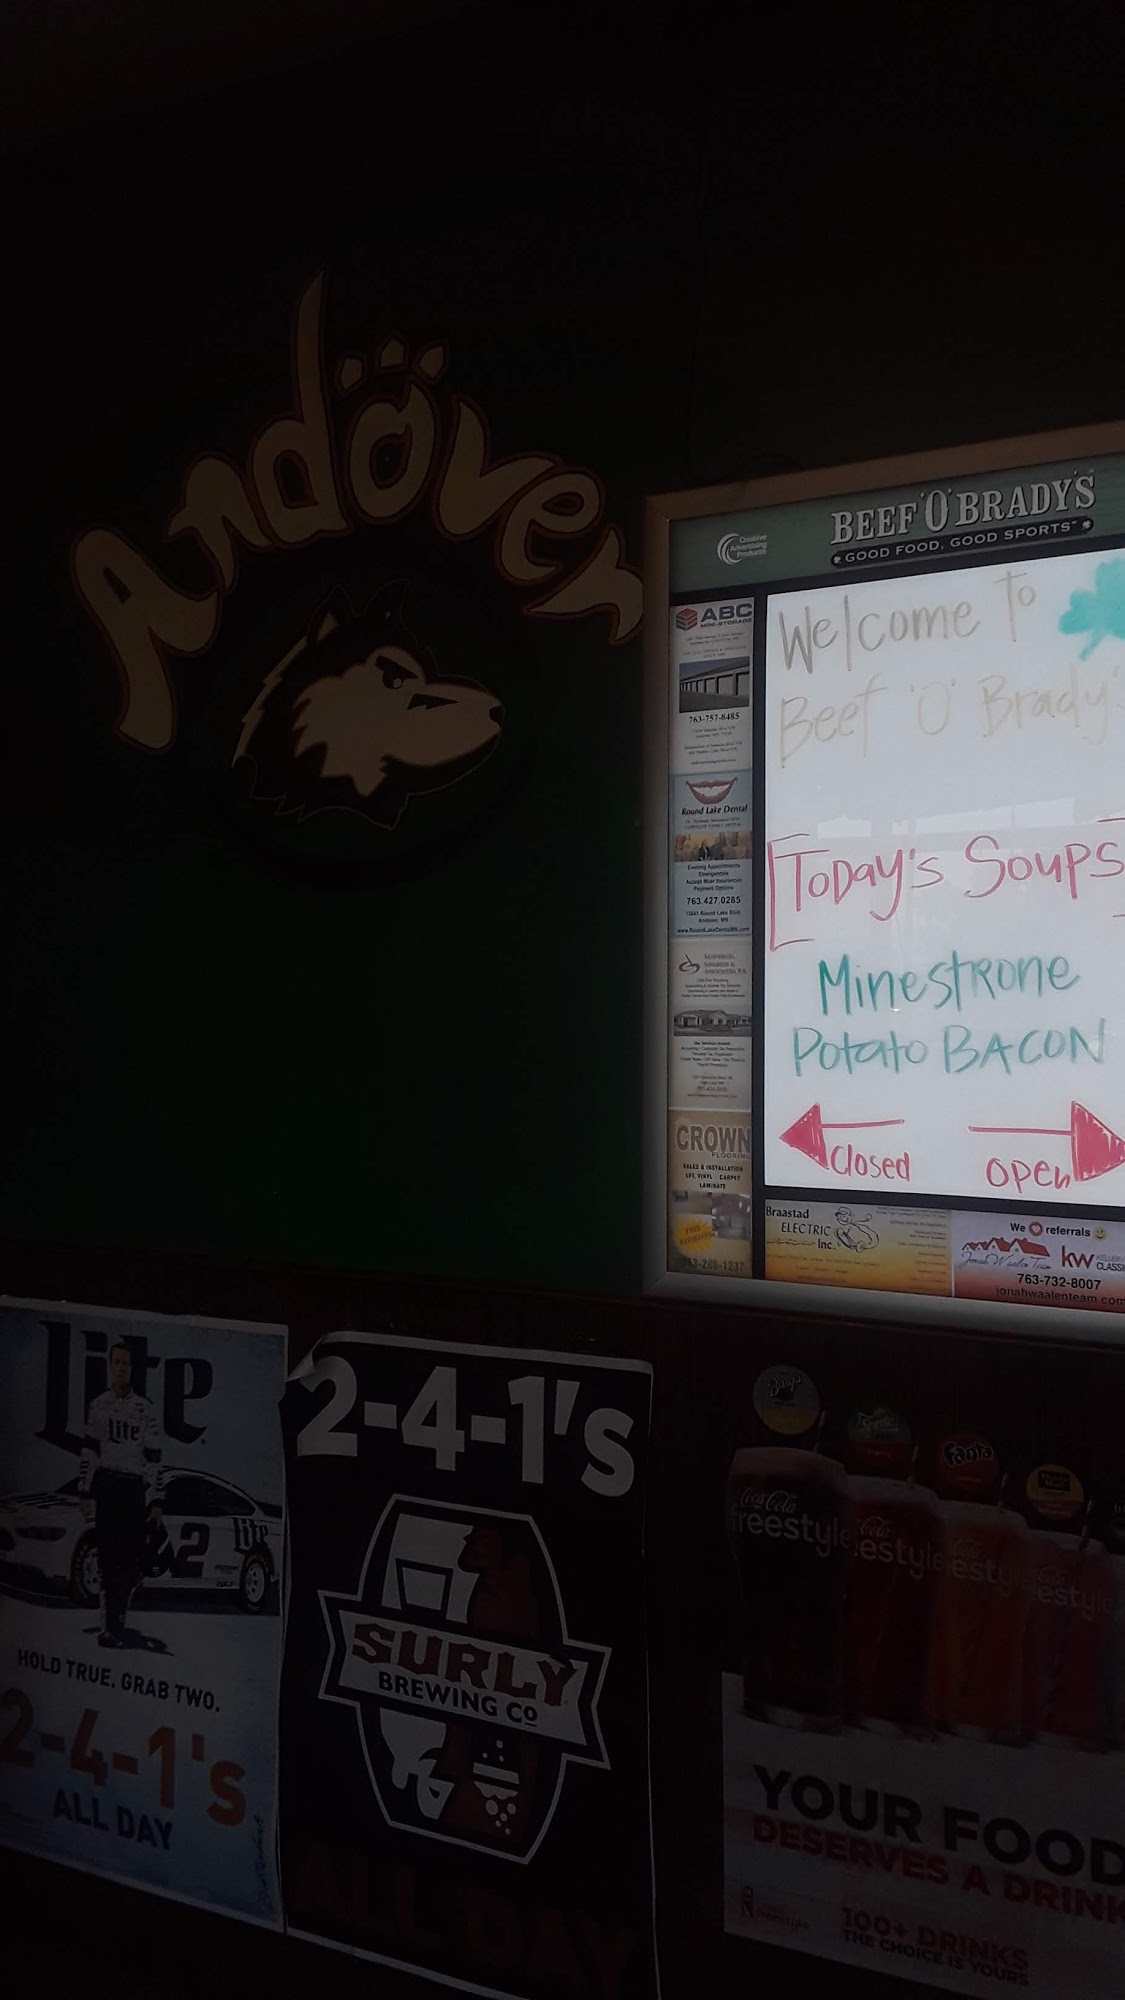 Andover
Creative
Advertising
Products
BEEF 'O' BRADY'S
GOOD FOOD, GOOD SPORTS
Welcome To
Beef 'O' Brady's
[Today's Soups]
Minestrone
Potato BACON
Closed
open
ABC
MINI-STORAGE
763-757-8485
Round Lake Dental
Evening Appointments
Emergencies
Accept Most Insurances
Payment Options
763.427.0285
13841 Round Lake Blvd.
Andover, MN
www.RoundLakeDentalMN.com
CROWN
FLOORING
SALES & INSTALLATION
LVT, VINYL CARPET
LAMINATE
FREE
763-286-1237
Braastad
ELECTRIC
Inc.
We referrals
Jonah Waalen Team
kw
CLASSI
763-732-8007
jonahwaalenteam.com
Lite
Lite
2 Lite
HOLD TRUE. GRAB TWO.
2-4-1's
ALL DAY
2-4-1's
SURLY
BREWING CO
ALL DAY
Barq's
Fanta
Coca-Cola
freestyle
Cola
estyle
YOUR FOOD
DESERVES A DRINK
100+ DRINKS
THE CHOICE IS YOURS